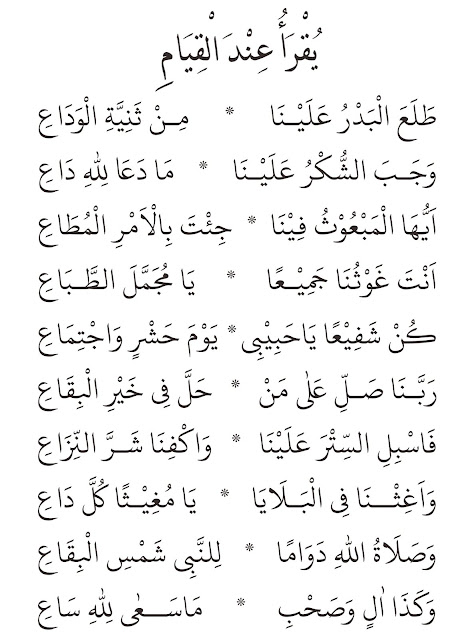 يُقْرَأُ عِنْدَ الْقِيَامِ
طَلَعَ الْبَدْرُ عَلَيْنَا * مِنْ ثَنِيَّةِ الْوَدَاعِ
وَجَبَ الشُّكْرُ عَلَيْنَا * مَا دَعَا لِلّٰهِ دَاعِ
اَيُّهَا الْمَبْعُوْثُ فِيْنَا * جِئْتَ بِالْاَمْرِ الْمُطَاعِ
اَنْتَ غَوْثُنَا جَمِيْعًا * يَا مُجَمَّلَ الطَّبَاعِ
كُنْ شَفِيْعًا يَاحَبِيْبِى * يَوْمَ حَشْرٍ وَاجْتِمَاعِ
رَبَّنَا صَلِّ عَلٰى مَنْ * حَلَّ فِى خَيْرِ الْبِقَاعِ
فَاسْبِلِ السِّتْرَ عَلَيْنَا * وَاكْفِنَا شَرَّ النِّزَاعِ
وَاَغِثْنَا فِى الْبَلَايَا * يَا مُغِيْثًا كُلَّ دَاعِ
وَصَلَاةُ اللهِ دَوَامًا * لِلنَّبِى شَمْسِ الْبِقَاعِ
وَكَذَا اٰلٍ وَصَحْبِ * مَاسَعٰى لِلّٰهِ سَاعِ